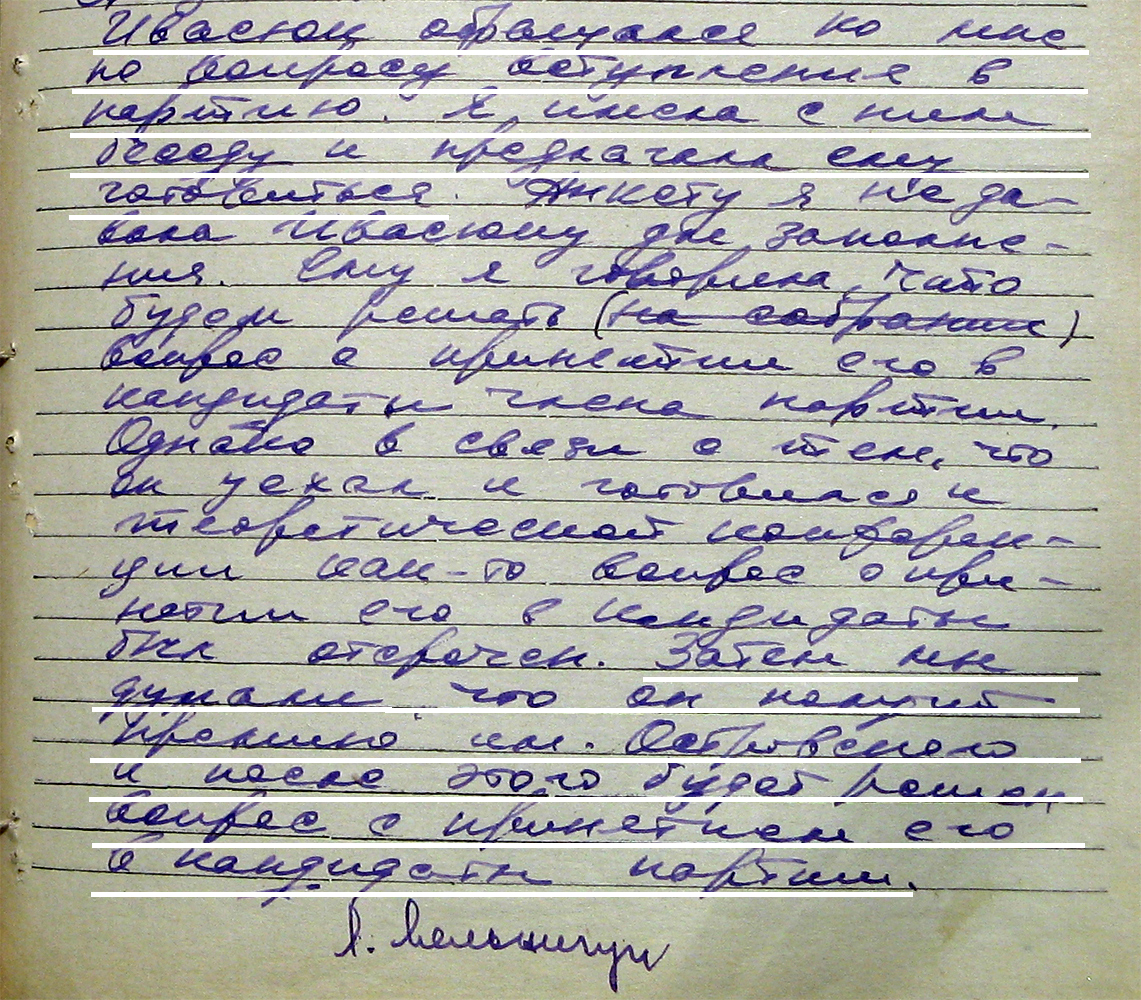 Ивасюк обращался ко мне
по вопросу вступления в
партию. Я имела с ним
беседу и предлагала ему
готовиться. Анкету я не да-
вала Ивасюку для заполне-
ния. Ему я говорила, что
будем решать (на собрании)
вопрос о принятии его в
кандидаты члена партии.
Однако в связи с тем, что
он уехал и готовился к
теоретической конферен-
ции как-то вопрос о при-
нятии его в кандидаты
был отсрочен. Затем мы
думали что он получит
премию им. Островского
и после этого будет решен
вопрос с принятием его
в кандидаты партии.